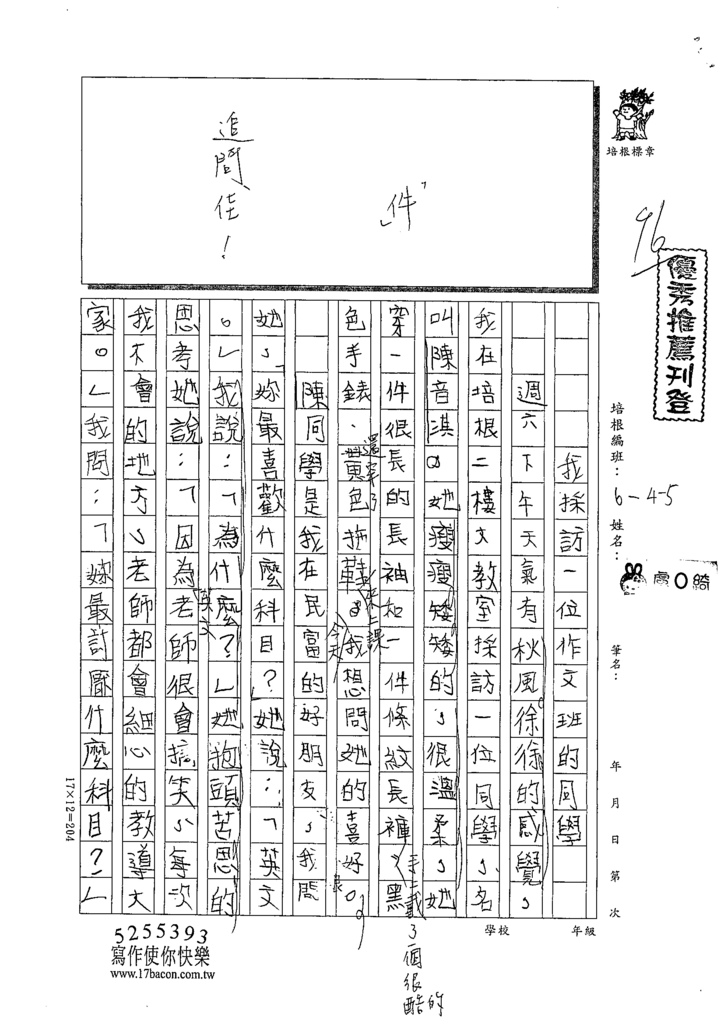 追問佳！
件
培根標章
96
優秀推薦刊登
培根編班：6-4-5
姓名：盧O綺
筆名：
年月日第次
學校 年級
我採訪一位作文班的同學
週六下午天氣有秋風徐徐的感覺，
我在培根二樓大教室採訪一位同學，名
叫陳音淇。她瘦瘦矮矮的，很溫柔，她
穿一件很長的長袖和一件條紋長褲，手上戴了一個很酷的黑
色手錶、還穿了黃色拖鞋來上課。今天我想問她的喜好。
陳同學是我在民富的好朋友，我問
她，「妳最喜歡什麼科目？」她說：「英文
。」我說：「為什麼？」她抱頭苦思的
思考她說：「因為英文老師很會搞笑，每次
我不會的地方，老師都會細心的教導大
家。」我問：「妳最討厭什麼科目？」
17×12=204
5255393
寫作使你快樂
www.17bacon.com.tw